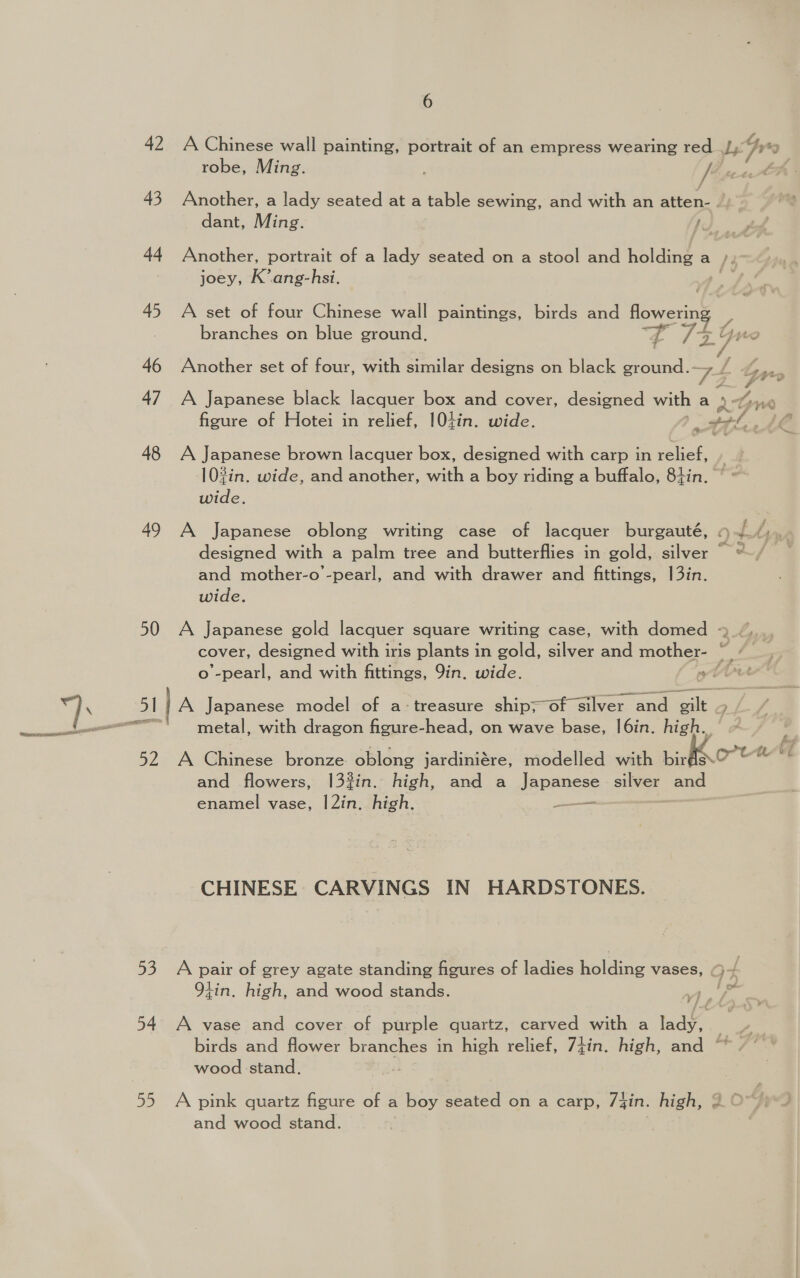 6
42 A Chinese wall painting, portrait of an empress wearing red
robe, Ming.
43 Another, a lady seated at a table sewing, and with an atten-
dant, Ming.
44 Another, portrait of a lady seated on a stool and holding a
joey, K'ang-hsi.
45 A set of four Chinese wall paintings, birds and flowering
branches on blue ground.
46 Another set of four, with similar designs on black ground.
47 A Japanese black lacquer box and cover, designed with a
figure of Hotei in relief, 10¼in. wide.
48 A Japanese brown lacquer box, designed with carp in relief,
10¾in. wide, and another, with a boy riding a buffalo, 8¼in.
wide.
49 A Japanese oblong writing case of lacquer burgauté,
designed with a palm tree and butterflies in gold, silver
and mother-o'-pearl, and with drawer and fittings, 13in.
wide.
50 A Japanese gold lacquer square writing case, with domed
cover, designed with iris plants in gold, silver and mother-
o'-pearl, and with fittings, 9in. wide.
51 A Japanese model of a treasure ship, of silver and gilt
metal, with dragon figure-head, on wave base, 16in. high.
52 A Chinese bronze oblong jardiniére, modelled with birds
and flowers, 13¾in. high, and a Japanese silver and
enamel vase, 12in. high.
CHINESE CARVINGS IN HARDSTONES.
53 A pair of grey agate standing figures of ladies holding vases,
9¼in. high, and wood stands.
54 A vase and cover of purple quartz, carved with a lady,
birds and flower branches in high relief, 7¼in. high, and
wood stand.
55 A pink quartz figure of a boy seated on a carp, 7½in. high,
and wood stand.